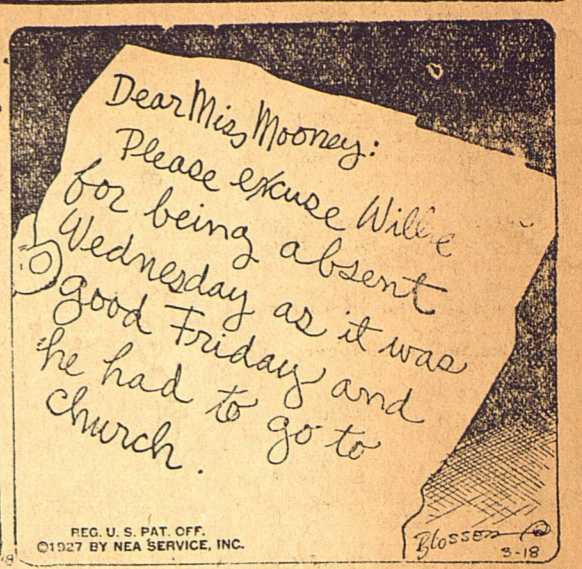 Dear Miss Mooney:
Please excuse Willie
for being absent
Wednesday as it was
good Friday and
he had to go to
church.
REG. U. S. PAT. OFF.
©1927 BY NEA SERVICE, INC.
BLOSSER
3-18